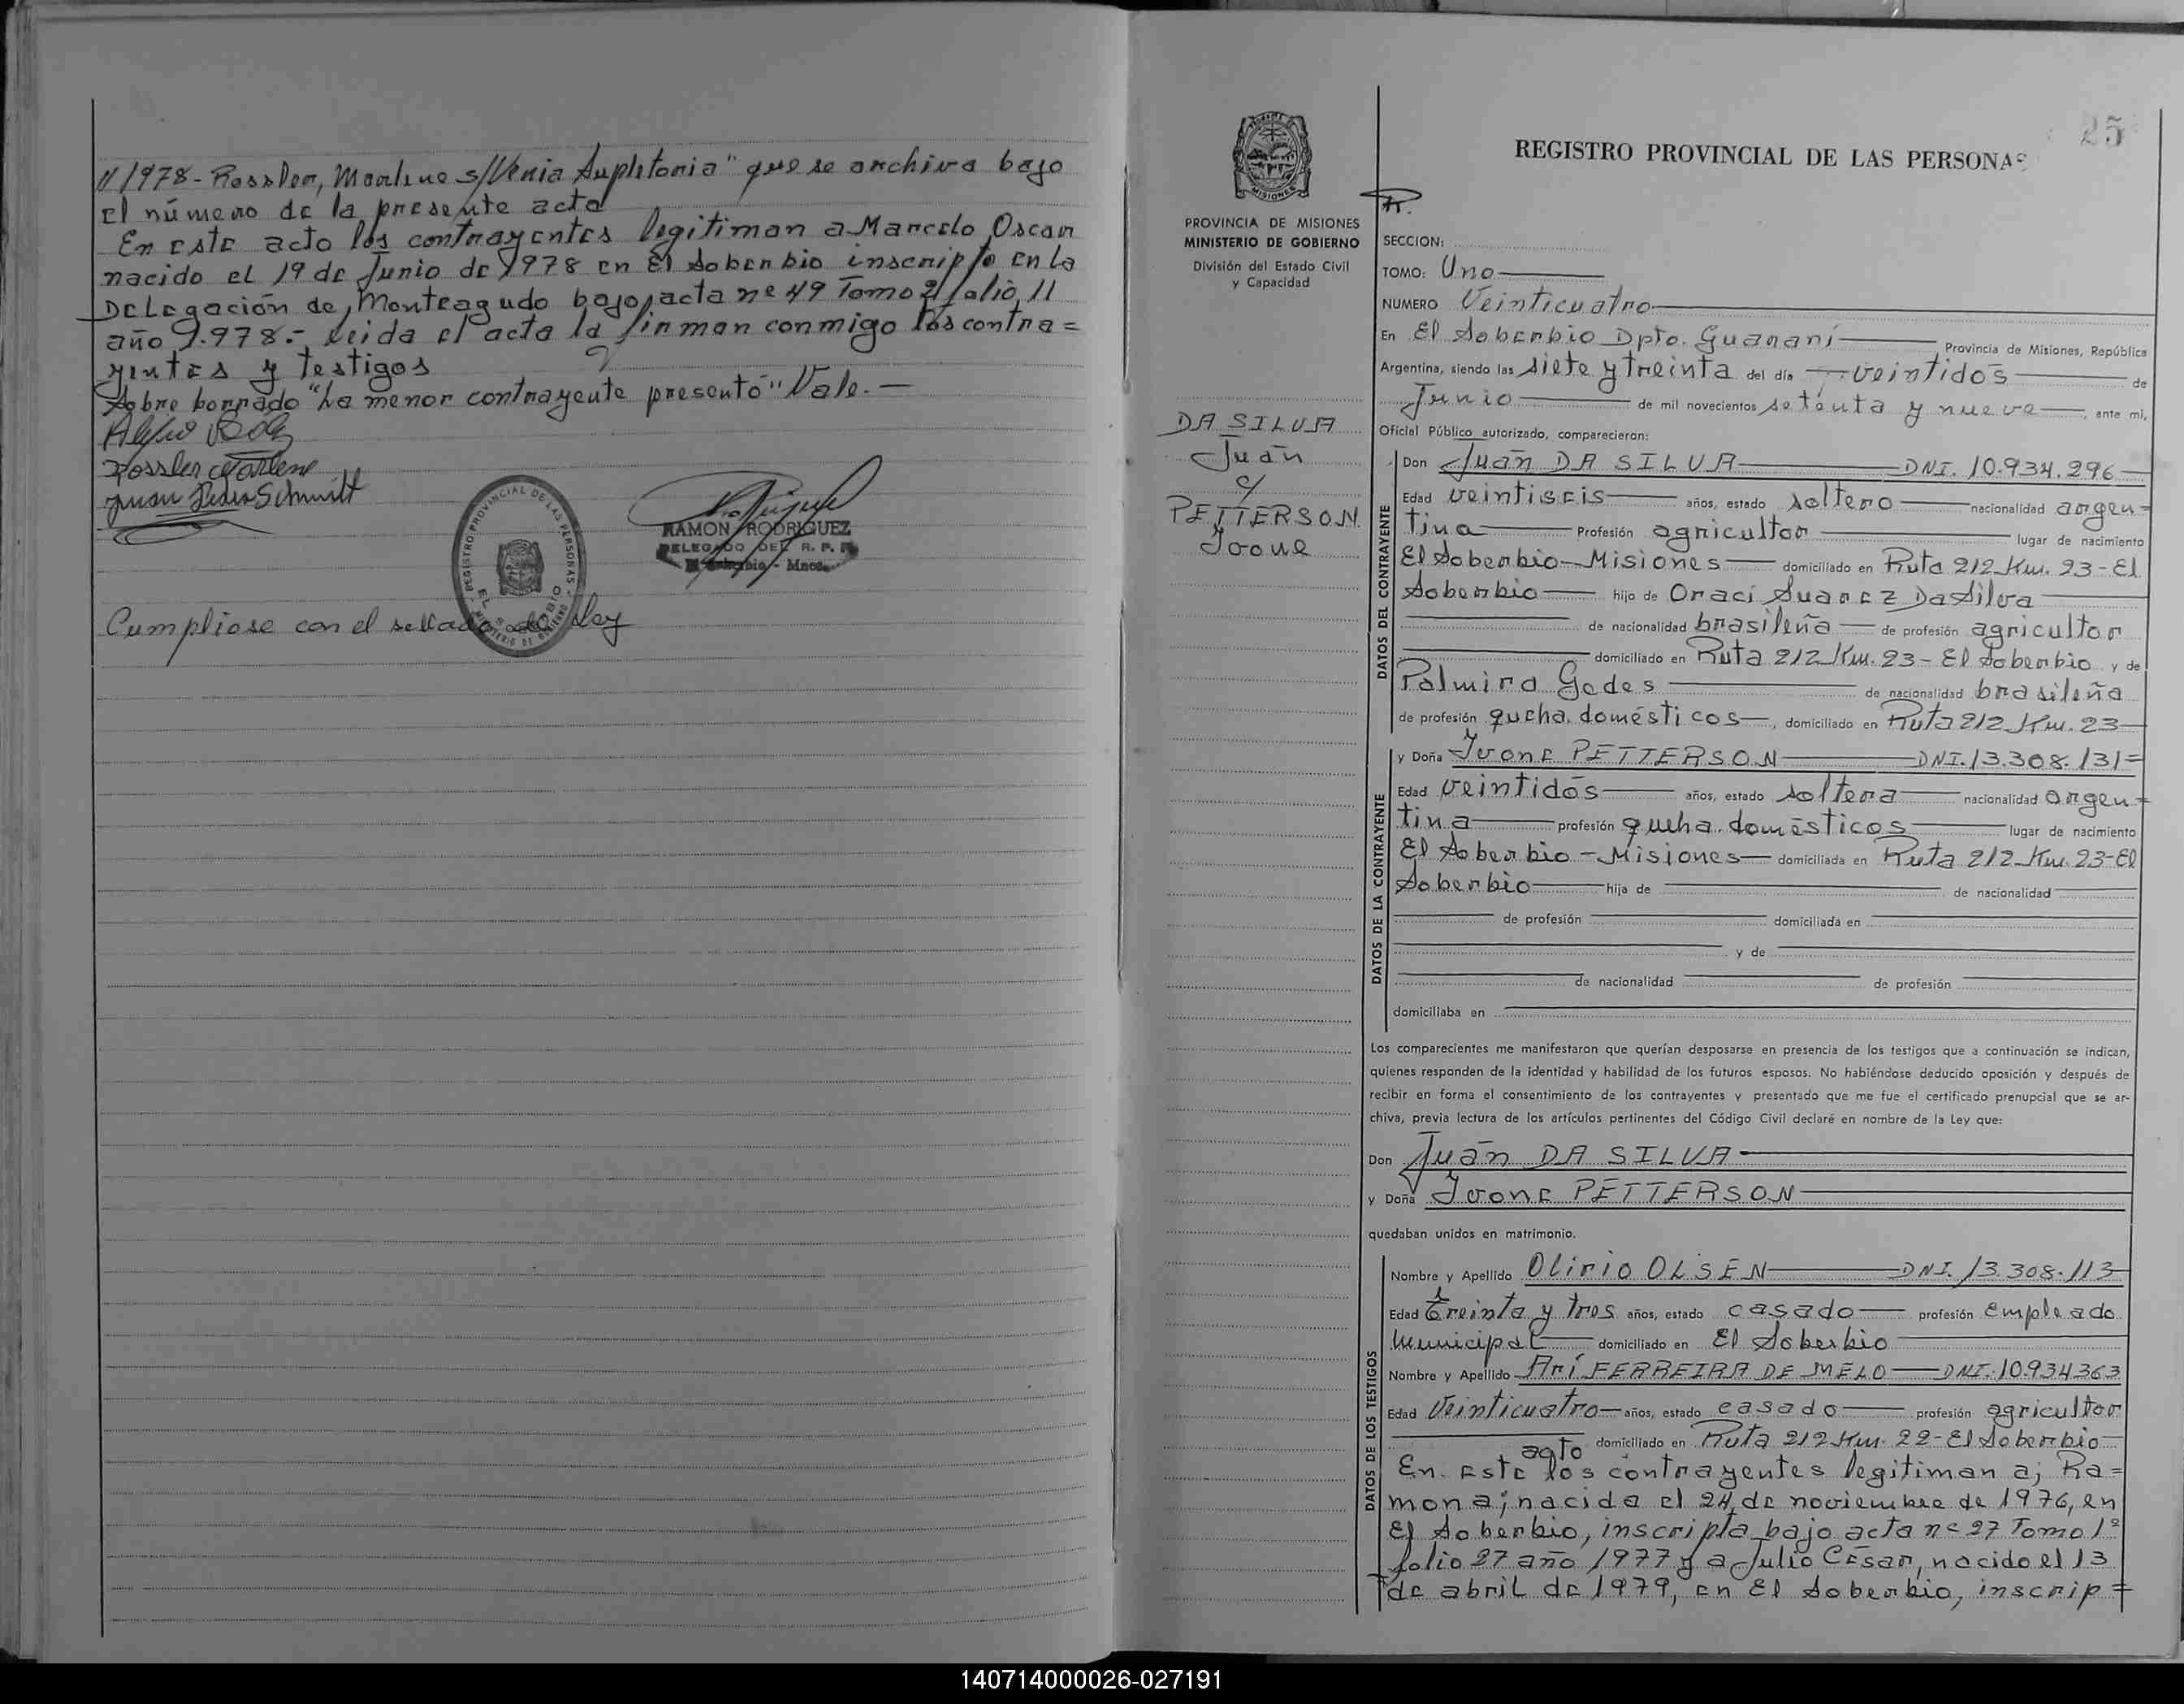 11/1978 - Rossler, Marlene s/Venia Supletoria" que se archiva bajo
el número de la presente acta
En este acto los contrayentes legitiman a Marcelo Oscar
nacido el 19 de Junio de 1978 en El Soberbio inscripto en la
Delegación de Monteagudo bajo acta nº 49 Tomo 2 folio 11
año 1.978.- Leida el acta la firman conmigo los contra=
yentes y testigos
Sobre borrado "La menor contrayente presentó" Vale.-
Rossler Marlene
Juan Pedro Schmitt
REGISTRO PROVINCIAL DE LAS PERSONAS
EL SOBERBIO
MINISTERIO DE GOBIERNO
RAMON RODRIGUEZ
DELEGADO DEL R. P. P.
El Soberbio - Mnes.
Cumpliose con el sellado de ley
25
REGISTRO PROVINCIAL DE LAS PERSONAS
MISIONES
PROVINCIA DE MISIONES
MINISTERIO DE GOBIERNO
División del Estado Civil
y Capacidad
DA SILVA
Juan
c/
PETTERSON
Ivone
SECCION:
TOMO: Uno
NUMERO Veinticuatro
En El Soberbio Dpto. Guaraní Provincia de Misiones, República
Argentina, siendo las siete y treinta del día veintidós de
Junio de mil novecientos setenta y nueve, ante mi,
Oficial Público autorizado, comparecieron:
DATOS DEL CONTRAYENTE
Don Juan DA SILVA DNI. 10.934.296
Edad veintiseis años, estado soltero nacionalidad argen=
tina Profesión agricultor lugar de nacimiento
El Soberbio-Misiones domiciliado en Ruta 212 Km. 23-El
Soberbio hijo de Oraci Suarez Da Silva
de nacionalidad brasileña de profesión agricultor
domiciliado en Ruta 212 Km. 23-El Soberbio y de
Palmira Godes de nacionalidad brasileña
de profesión queha. domésticos, domiciliado en Ruta 212 Km. 23
DATOS DE LA CONTRAYENTE
y Doña Ivone PETTERSON DNI. 13.308.131=
Edad veintidós años, estado soltera nacionalidad argen=
tina profesión queha. domésticos lugar de nacimiento
El Soberbio-Misiones domiciliada en Ruta 212 Km. 23-El
Soberbio hija de de nacionalidad
de profesión domiciliada en
y de
de nacionalidad de profesión
domiciliaba en
Los comparecientes me manifestaron que querían desposarse en presencia de los testigos que a continuación se indican,
quienes responden de la identidad y habilidad de los futuros esposos. No habiéndose deducido oposición y después de
recibir en forma el consentimiento de los contrayentes y presentado que me fue el certificado prenupcial que se ar-
chiva, previa lectura de los artículos pertinentes del Código Civil declaré en nombre de la Ley que:
Don Juan DA SILVA
y Doña Ivone PETTERSON
quedaban unidos en matrimonio.
DATOS DE LOS TESTIGOS
Nombre y Apellido Olirio OLSEN DNI. 13.308.113
Edad treinta y tres años, estado casado profesión empleado
municipal domiciliado en El Soberbio
Nombre y Apellido Arí FERREIRA DE MELO DNI. 10.934363
Edad Veinticuatro años, estado casado profesión agricultor
domiciliado en Ruta 212 Km. 22-El Soberbio
En este acto los contrayentes legitiman a; Ra=
mona; nacida el 24 de noviembre de 1976, en
El Soberbio, inscripta bajo acta nº 27 Tomo 1º
folio 27 año 1977 y a Julio César, nacido el 13
de abril de 1979, en El Soberbio, inscrip=
140714000026-027191